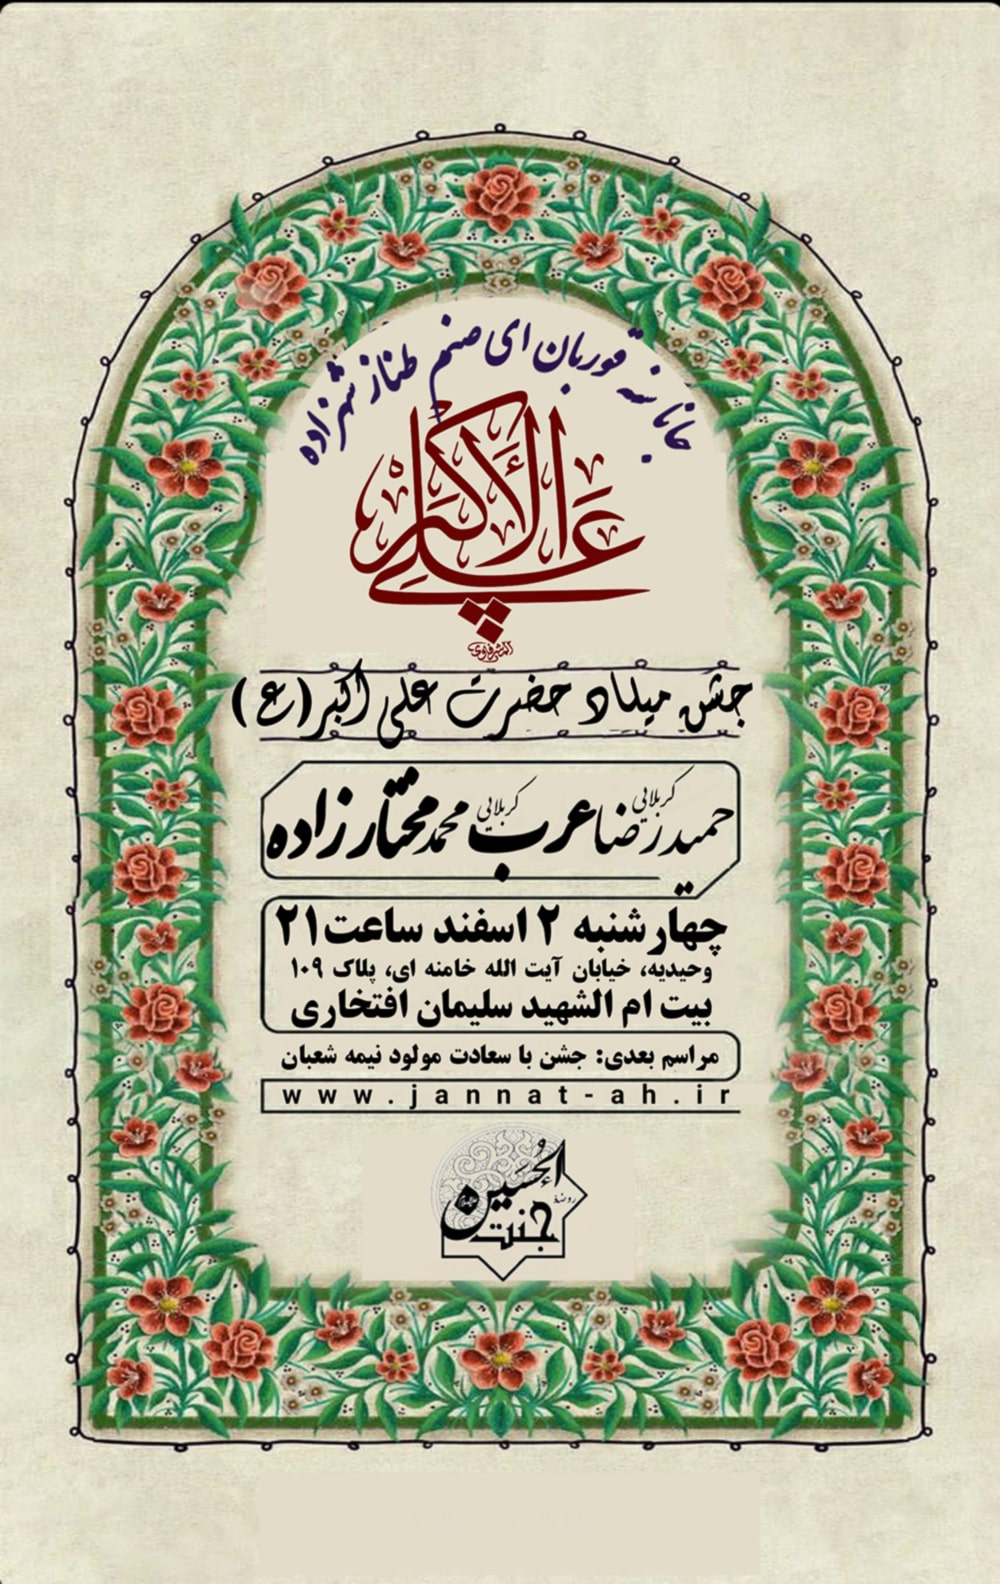 جانا سنه قوربان ای صنم طناز شهزاده
علی الاکبر
جشن میلاد حضرت علی اکبر (ع)
کربلایی حمیدرضا عرب کربلایی محمد مختارزاده
چهارشنبه ۲ اسفند ساعت ۲۱
وحیدیه، خیابان آیت الله خامنه ای، پلاک ۱۰۹
بیت ام الشهید سلیمان افتخاری
مراسم بعدی: جشن با سعادت مولود نیمه شعبان
www.jannat-ah.ir
روضة
جنت الحسین